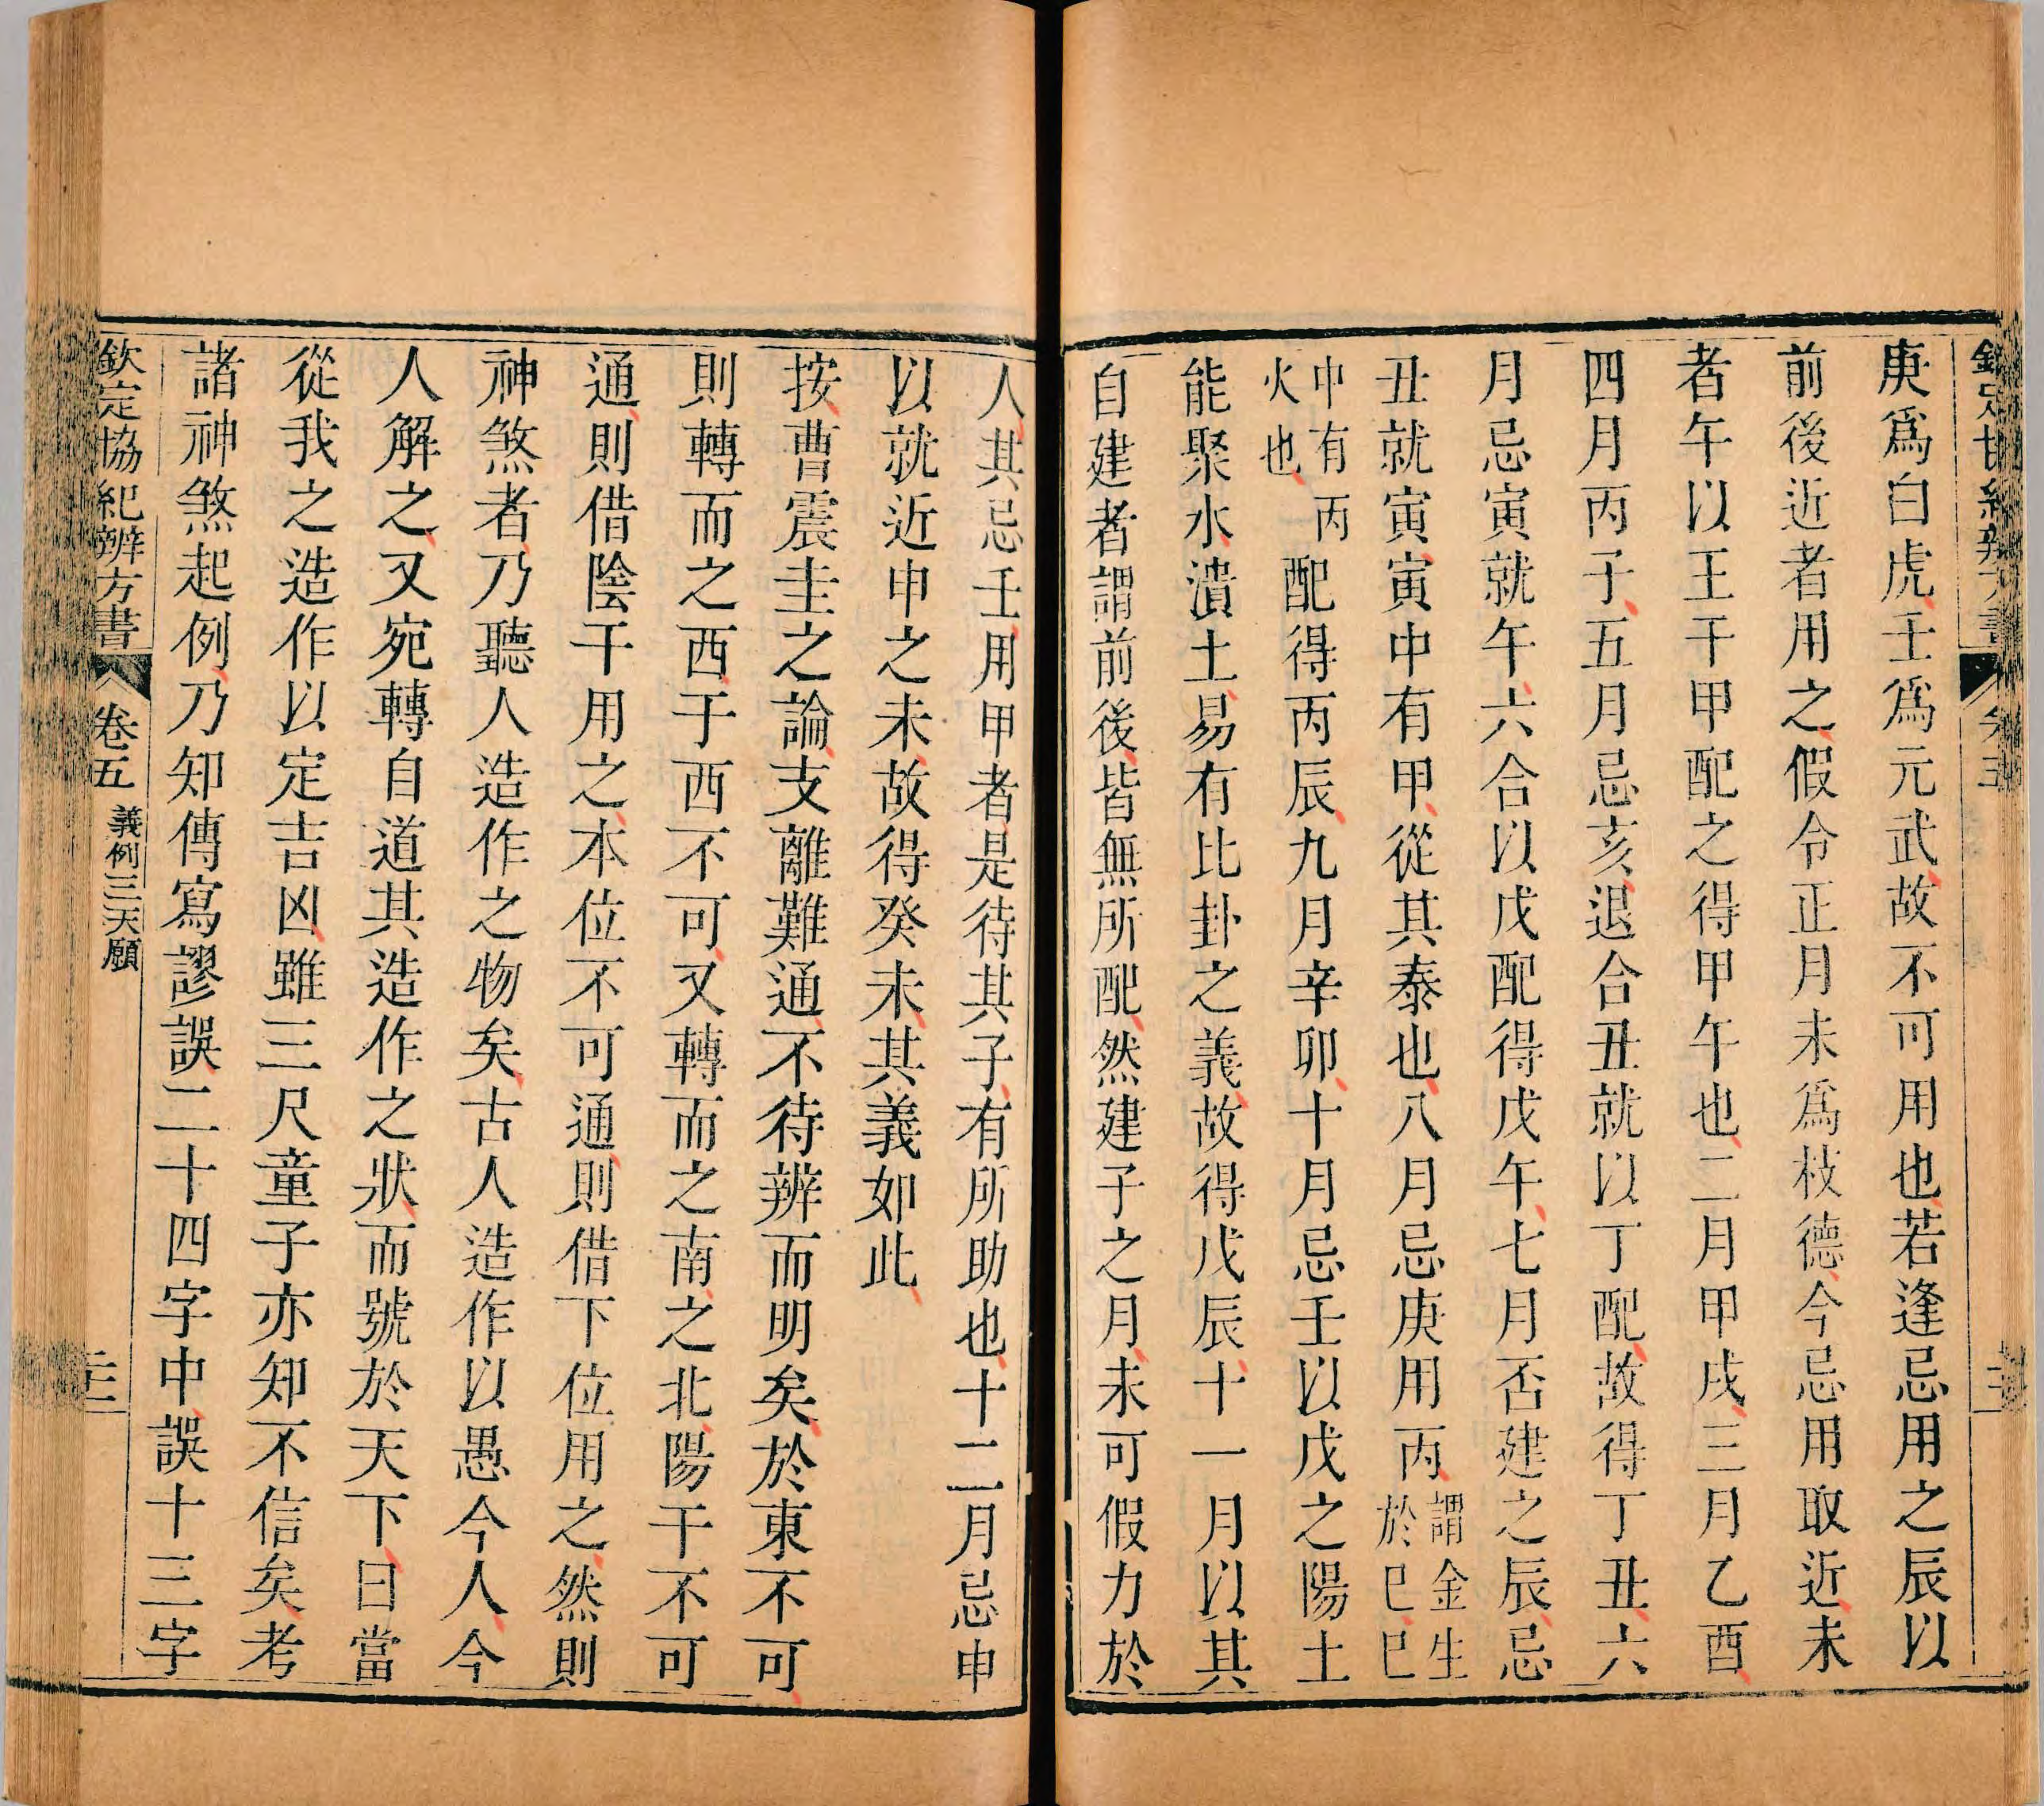 欽定協紀辨方書 卷五
庚爲白虎壬爲元武故不可用也若逢忌用之辰以
前後近者用之假令正月未爲枝德今忌用取近未
者午以王干甲配之得甲午也二月甲戌三月乙酉
四月丙子五月忌亥退合丑就以丁配故得丁丑六
月忌寅就午六合以戊配得戊午七月否建之辰忌
丑就寅寅中有甲從其泰也八月忌庚用丙謂金生於巳巳
中有丙火也配得丙辰九月辛卯十月忌壬以戊之陽土
能聚水潰土易有比卦之義故得戊辰十一月以其
自建者謂前後皆無所配然建子之月未可假力於
人其忌壬用甲者是待其子有所助也十二月忌申
以就近申之未故得癸未其義如此
按曹震圭之論支離難通不待辨而明矣於東不可
則轉而之西于西不可又轉而之南之北陽干不可
通則借陰干用之本位不可通則借下位用之然則
神煞者乃聽人造作之物矣古人造作以愚今人今
人解之又宛轉自道其造作之狀而號於天下曰當
從我之造作以定吉凶雖三尺童子亦知不信矣考
諸神煞起例乃知傳寫謬誤二十四字中誤十三字
欽定協紀辨方書 卷五 義例三天願